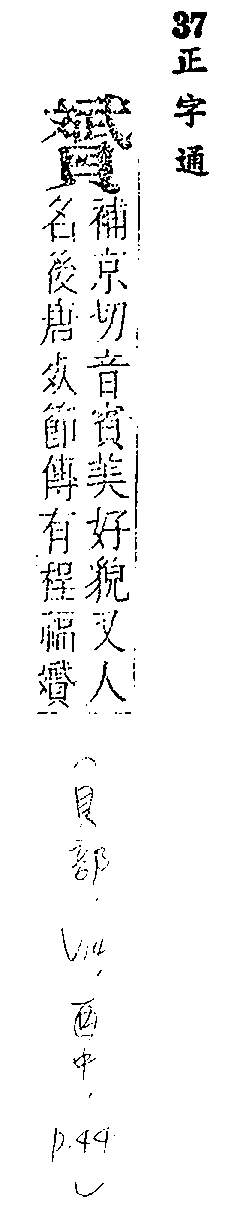 37 正字通
贇
補京切音賓美好貌又人
名後唐死節傳有程福贇
(貝部, V14, 酉中, p.44)